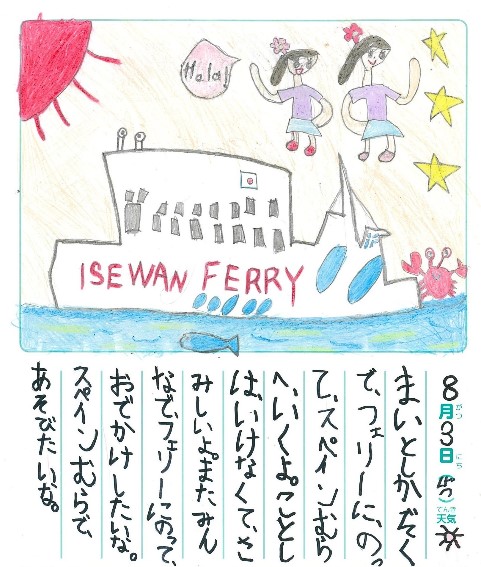 Hola!
ISEWAN FERRY
8月3日
がつ
にち
天気
てんき
まいとしかぞく
で、フェリーに、のっ
て、スペインむら
へ、いくよ。ことし
は、いけなくて、さ
みしいよ。またみん
なで、フェリーにのって、
おでかけしたいな。
スペインむらで、
あそびたいな。